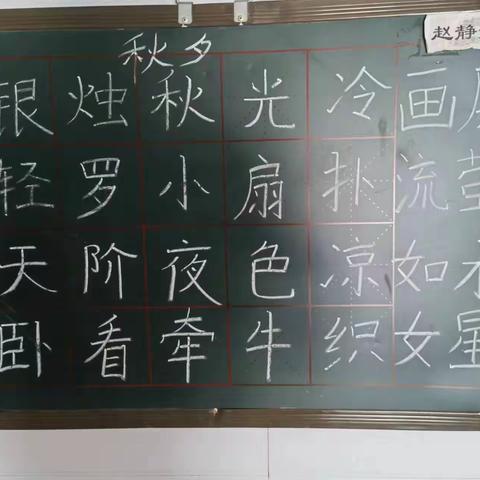 赵静
秋夕
银烛秋光冷画
轻罗小扇扑流
天阶夜色凉如
卧看牵牛织女星